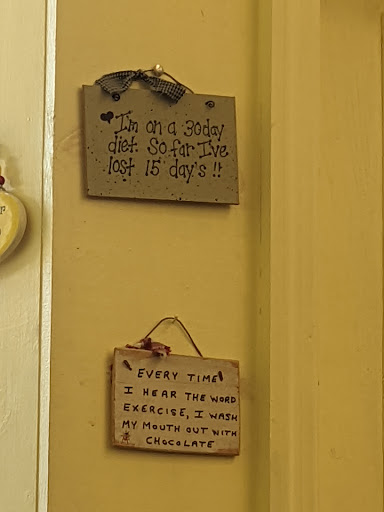 I'm on a 30 day
diet. So far I've
lost 15 day's !!
EVERY TIME
I HEAR THE WORD
EXERCISE, I WASH
MY MOUTH OUT WITH
CHOCOLATE